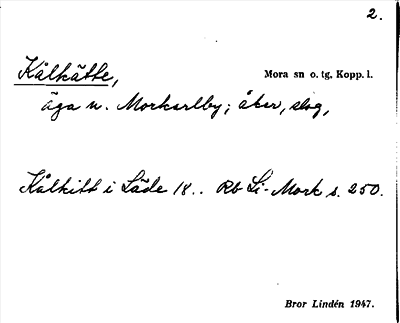 2.
Kålkätte, Mora sn o. tg, Kopp. l.
äga n. Morkarlby; åker, slog,
Kålkitt i Läde 18.. Rb Li-Mork s. 250.
Bror Lindén 1947.